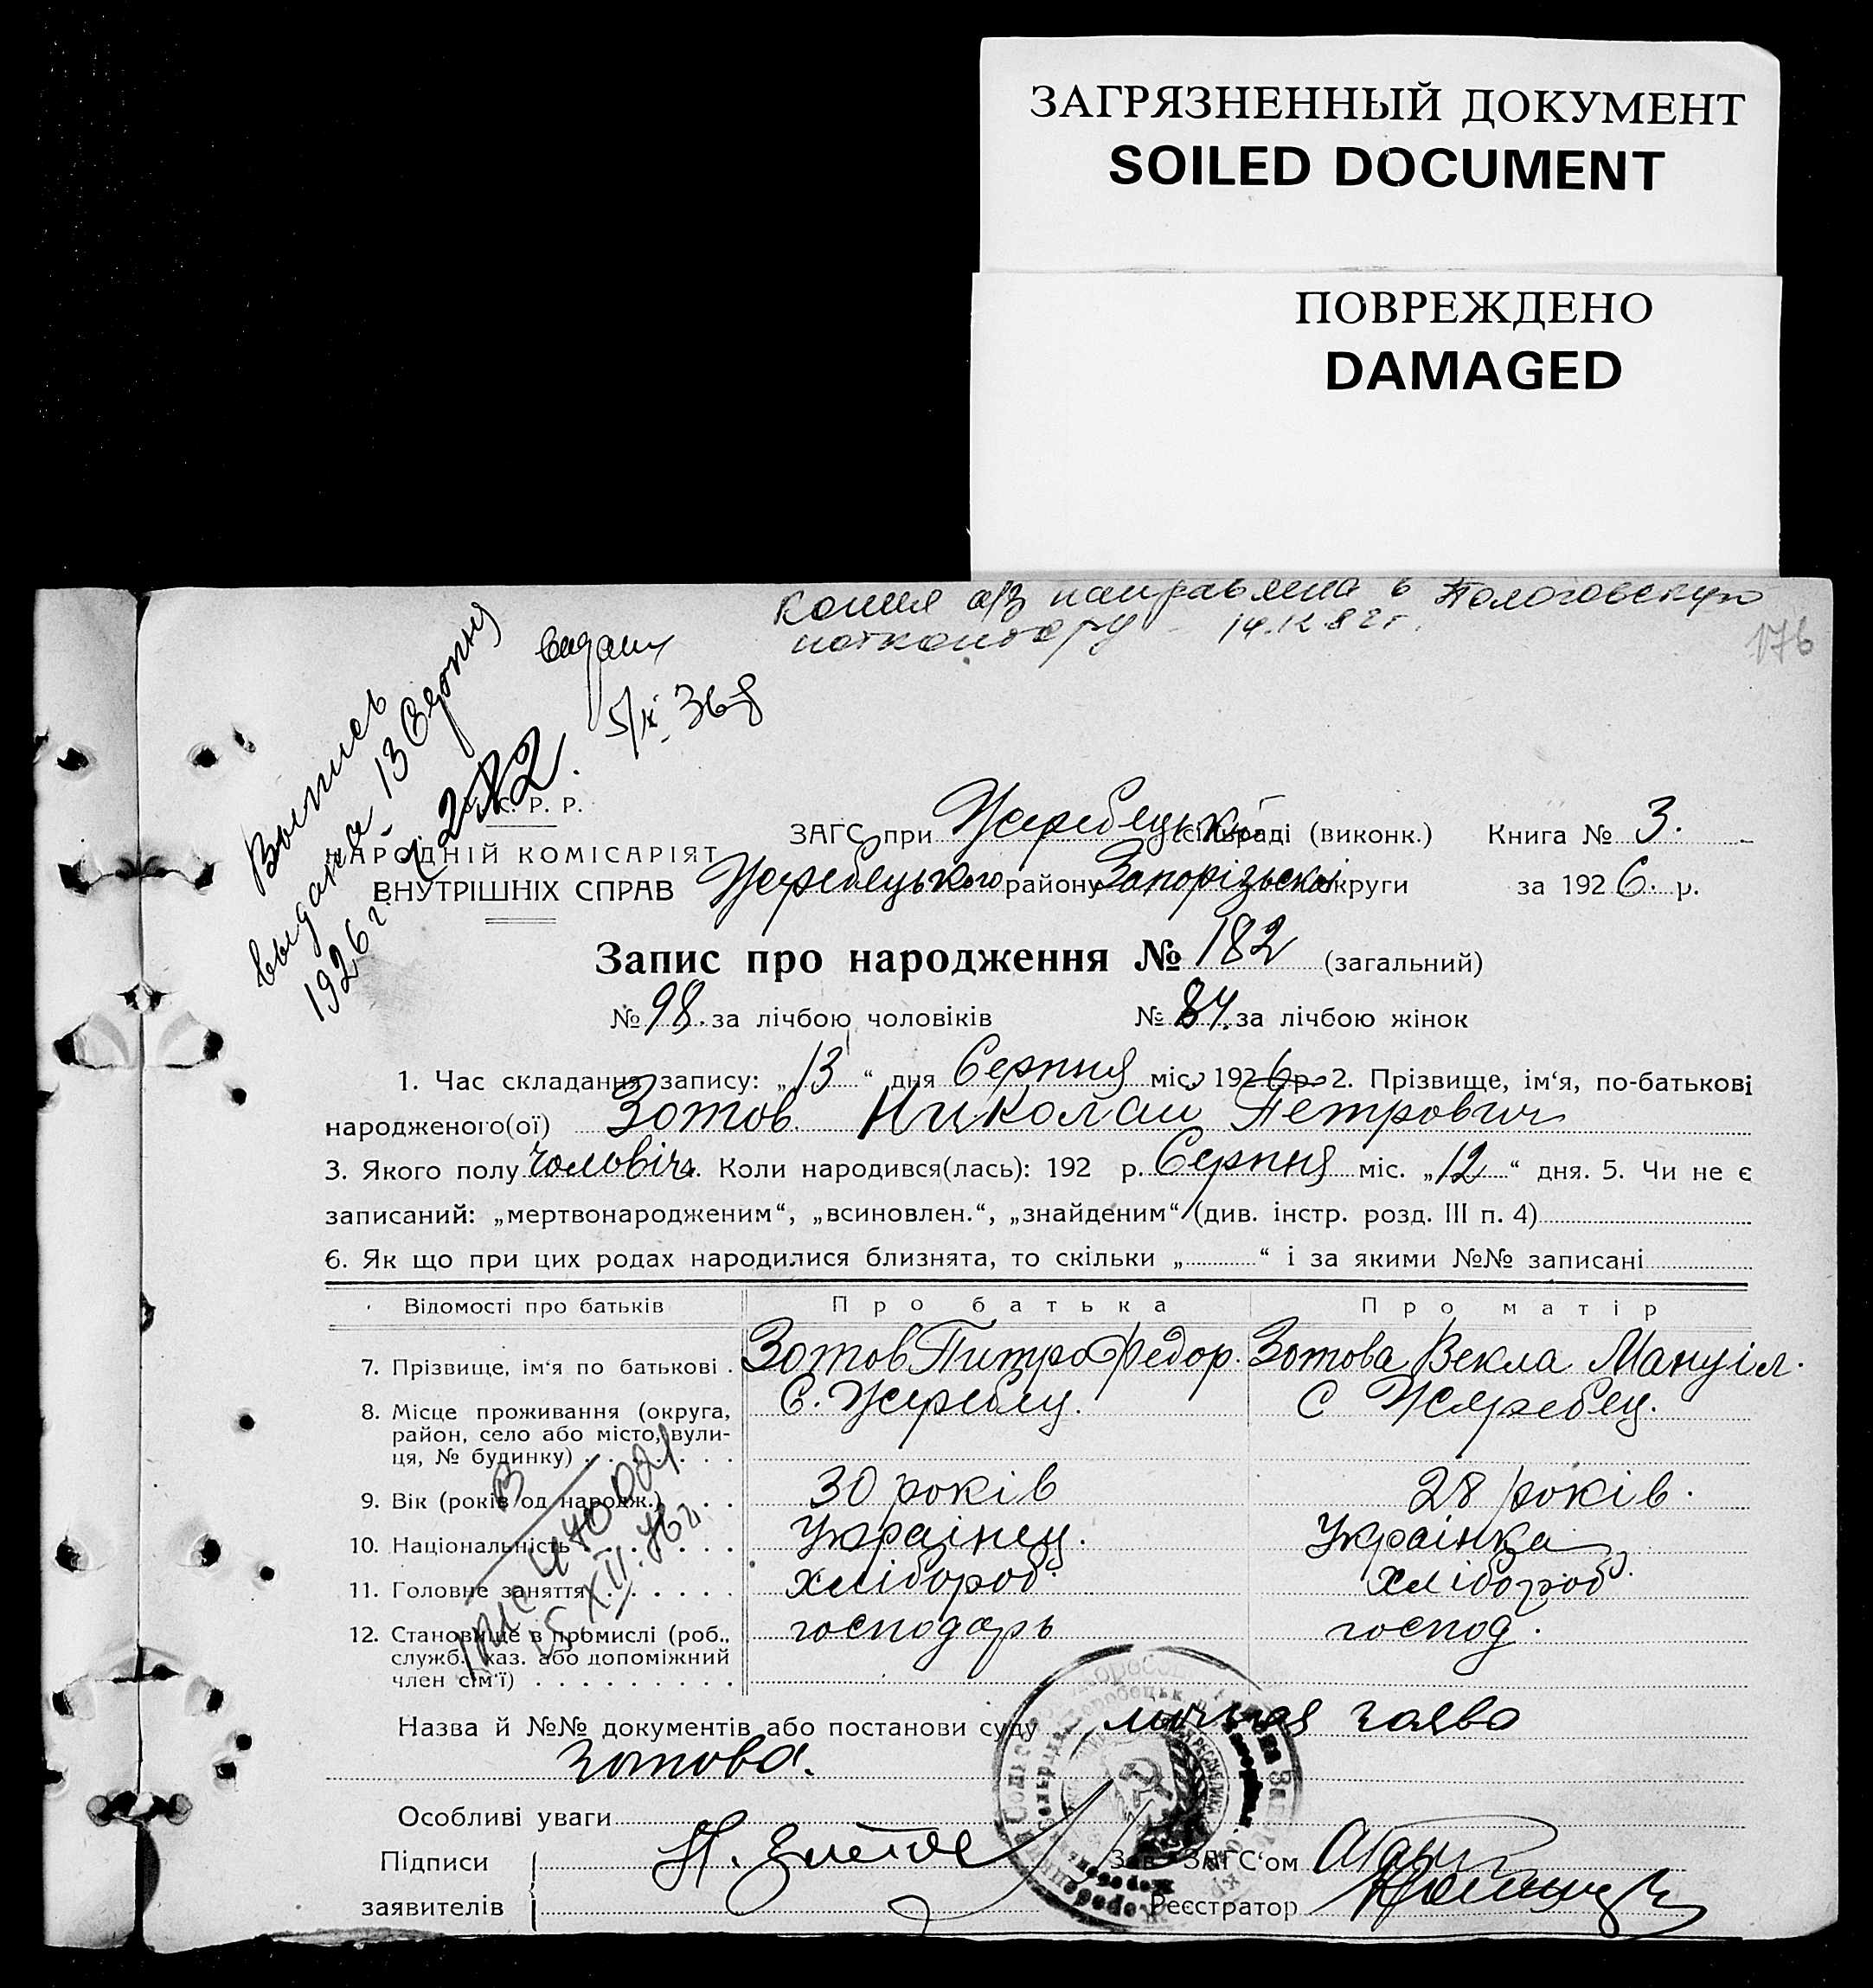 ЗАГРЯЗНЕННЫЙ ДОКУМЕНТ
SOILED DOCUMENT
ПОВРЕЖДЕНО
DAMAGED
копия а/з направлена в Пологовскую
нотконтору - 14.12.82 г.
176
Выпись
выдана 13 Серпня
1926 г.
С. Р. Р.
НАРОДНІЙ КОМІСАРІЯТ
ВНУТРІШНІХ СПРАВ
ЗАГС при Жеребецькій сільраді (виконк.) Книга № 3.
Жеребецького району Запорізької округи за 1926. р.
Запис про народження № 182 (загальний)
№ 98. за лічбою чоловіків № 84. за лічбою жінок
1. Час складання запису: „13“ дня Серпня міс. 1926 р. 2. Прізвище, ім‘я, по-батькові
народженого(ої) Зотов Николай Петрович
3. Якого полу чоловіч. Коли народився(лась): 192 р. Серпня міс. „12“ дня. 5. Чи не є
записаний: „мертвонародженим“, „всиновлен.“, „знайденим“ (див. інстр. розд. III п. 4)
6. Як що при цих родах народилися близнята, то скільки „ “ і за якими №№ записані
Відомості про батьків Про батька Про матір
7. Прізвище, ім‘я по батькові . Зотов Питро Федор. Зотова Векла Мануіл.
8. Місце проживання (округа, С. Жеребец. С Жеребец.
район, село або місто, вули-
ця, № будинку)
9. Вік (років од народж.) 30 років 28 років.
10. Національність Украінец. Украінка
11. Головне заняття хлібороб. хлібороб.
12. Становище в промислі (роб., господарь господ.
служб. хаз. або допоміжний
член сім‘ї)
15.XII.76г.
Назва й №№ документів або постанови суду личная заява
Зотова.
Особливі уваги
Підписи
заявителів
Зав. ЗАГС‘ом
Реєстратор